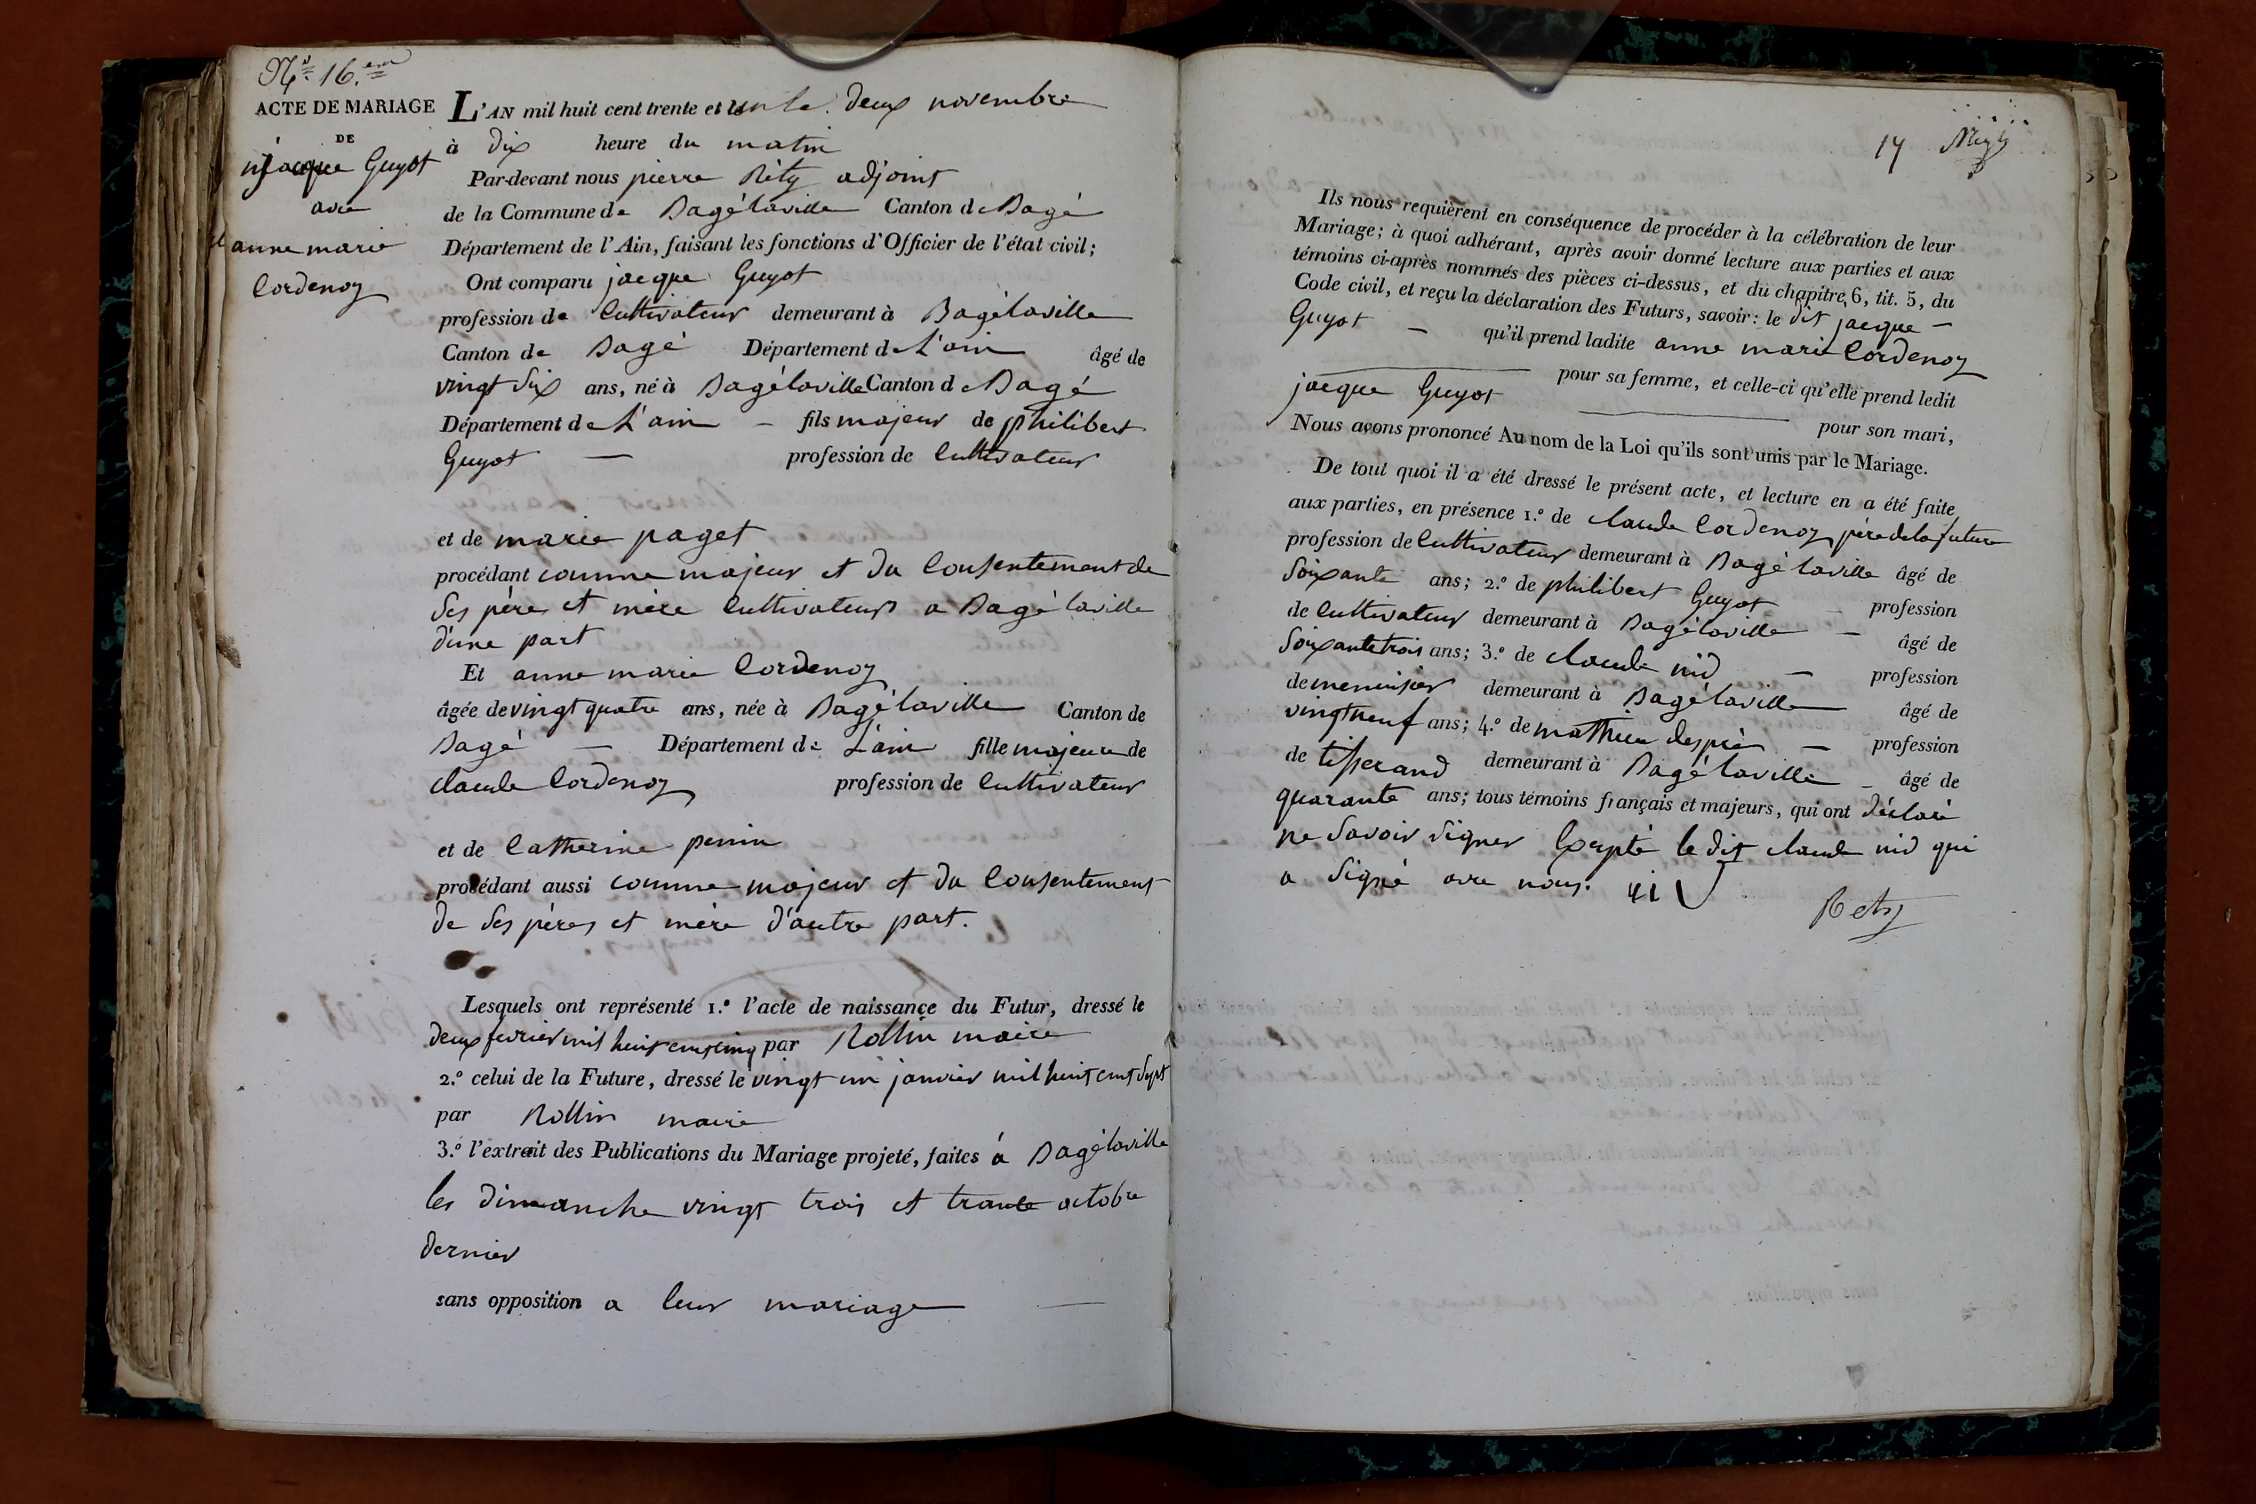 N.º 16.em
ACTE DE MARIAGE
DE
jacque Guyot
avec
anne marie
Cordenoz
L'AN mil huit cent trente et un le deux novembre
à dix heure du matin
Par-devant nous pierre Réty adjoint
de la Commune de Bagélaville Canton de Bagé
Département de l'Ain, faisant les fonctions d'Officier de l'état civil;
Ont comparu jacque Guyot
profession de Cultivateur demeurant à Bagélaville
Canton de Bagé Département de L'ain âgé de
vingt six ans, né à Bagélaville Canton de Bagé
Département de L'ain — fils majeur de philibert
Guyot — profession de Cultivateur
et de marie paget
procédant comme majeur et du Consentement de
Ses père et mère Cultivateurs a Bagé laville
d'une part
Et anne marie Cordenoz
âgée de vingt quatre ans, née à Bagélaville Canton de
Bagé — Département de L'ain fille majeure de
claude Cordenoz profession de Cultivateur
et de Catherine perrin
procédant aussi comme majeur et du Consentement
de Ses pères et mère d'autre part.
Lesquels ont représenté 1.º l'acte de naissance du Futur, dressé le
deux fevrier mil huit cent cinq par Rollin maire
2.º celui de la Future, dressé le vingt un janvier mil huit cent Sept
par Rollin maire
3.º l'extrait des Publications du Mariage projeté, faites à Bagélaville
les dimanche vingt trois et trante octobre
dernier
sans opposition a leur mariage —
17
Ils nous requièrent en conséquence de procéder à la célébration de leur
Mariage; à quoi adhérant, après avoir donné lecture aux parties et aux
témoins ci-après nommés des pièces ci-dessus, et du chapitre 6, tit. 5, du
Code civil, et reçu la déclaration des Futurs, savoir: le dit jacque —
Guyot — qu'il prend ladite anne marie Cordenoz
— pour sa femme, et celle-ci qu'elle prend ledit
jacque Guyot — pour son mari,
Nous avons prononcé Au nom de la Loi qu'ils sont unis par le Mariage.
De tout quoi il a été dressé le présent acte, et lecture en a été faite
aux parties, en présence 1.º de claude Cordenoz père de la future
profession de Cultivateur demeurant à Bagé laville âgé de
Soixante ans; 2.º de philibert Guyot — profession
de Cultivateur demeurant à Bagélaville — âgé de
Soixante trois ans; 3.º de claude nid — profession
de menuisier demeurant à Bagélaville âgé de
vingt neuf ans; 4.º de mathieu — profession
de tisserand demeurant à Bagélaville — âgé de
quarante ans; tous témoins français et majeurs, qui ont déclaré
ne Savoir Signer Excepté le dit claude nid qui
a Signé avec nous. ni
Rety